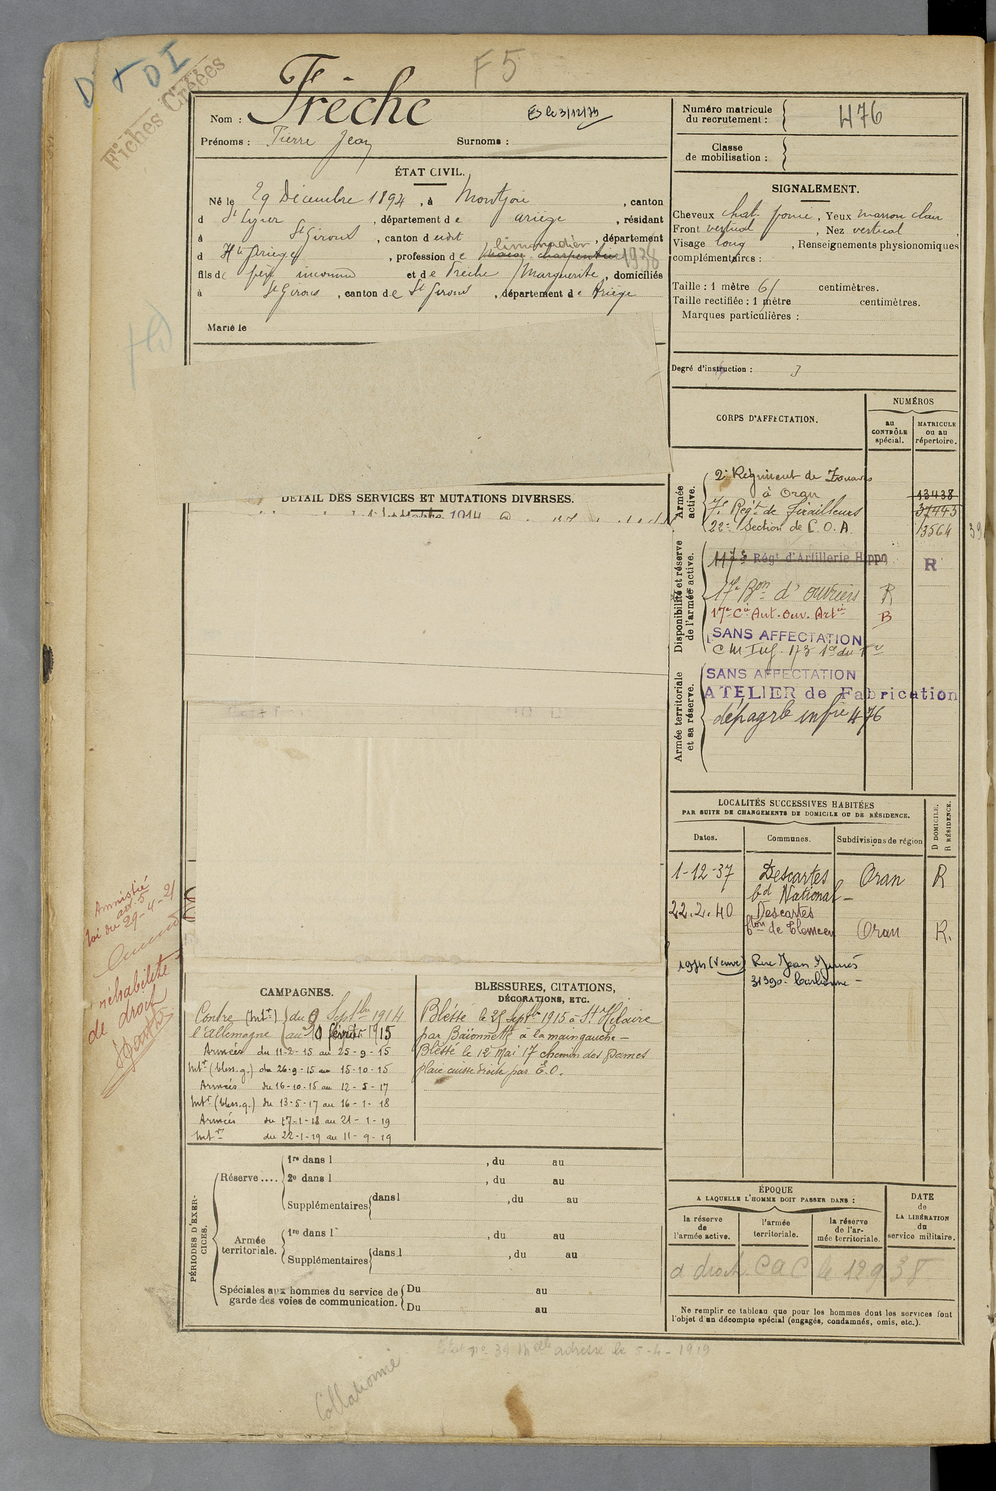 D + D I
Fiches Créées
F5
Nom : Frèche
Es le 3/12/74
Prénoms : Pierre Jean Surnoms :
Numéro matricule du recrutement : 476
Classe de mobilisation :
ÉTAT CIVIL.
Né le 29 Décembre 1894, à Montjoie, canton
d St Lizier, département de Ariège, résidant
à St Girons, canton dudit, département
d Hte Ariège, profession de limonadier 1938
fils de père inconnu et de Frèche Marguerite, domiciliés
à St Girons, canton de St Girons, département de Ariège
Marié le
SIGNALEMENT.
Cheveux chat. foncé, Yeux marron clair
Front vertical, Nez vertical
Visage long, Renseignements physionomiques
complémentaires :
Taille : 1 mètre 61 centimètres.
Taille rectifiée : 1 mètre centimètres.
Marques particulières :
Degré d'instruction : 3
CORPS D'AFFECTATION.
NUMÉROS
au CONTRÔLE spécial.
MATRICULE ou au répertoire.
Armée active.
2e Régiment de Zouaves
à Oran 13438
7e Regt de Tirailleurs 37445
22e Section de C. O. A 13564
Disponibilité et réserve de l'armée active.
117e Régt d'Artillerie Hippo R
17e Bon d'ouvriers R
17e Cie Aut. Ouv. Artie B
SANS AFFECTATION
Armée territoriale et sa réserve.
SANS AFFECTATION
ATELIER de Fabrication
DÉTAIL DES SERVICES ET MUTATIONS DIVERSES.
1914
LOCALITÉS SUCCESSIVES HABITÉES
PAR SUITE DE CHANGEMENTS DE DOMICILE OU DE RÉSIDENCE.
Dates. Communes. Subdivisions de région D DOMICILE. R RÉSIDENCE.
1-12-37 Descartes Oran R
bd National
22.2.40 Descartes
fbg de Tlemcen Oran R.
1974 (Veuve) Rue Jean Jaurès
31390 Carbonne
Amnistié
art 5
loi du 29-4-21
réhabilité
de droit
CAMPAGNES.
Contre (Intr) du 9 Septbre 1914
l'Allemagne au 10 février 1915
Armées du 11-2-15 au 25-9-15
Intr (bless.g.) du 26-9-15 au 15-10-15
Armées du 16-10-15 au 12-5-17
Intr (bless.g.) du 13-5-17 au 16-1-18
Armées du 17-1-18 au 21-1-19
Intr du 22-1-19 au 11-9-19
BLESSURES, CITATIONS,
DÉCORATIONS, ETC.
Blessé le 25 Septbre 1915 à St Hilaire
par Baïonnette à la main gauche —
Blessé le 12 Mai 17 chemin des Dames
plaie cuisse droite par E.O.
PÉRIODES D'EXERCICES.
Réserve.... 1re dans l , du au
2e dans l , du au
Supplémentaires dans l , du au
Armée territoriale. 1re dans l , du au
Supplémentaires dans l , du au
Spéciales aux hommes du service de garde des voies de communication. Du au
Du au
ÉPOQUE
A LAQUELLE L'HOMME DOIT PASSER DANS :
la réserve de l'armée active. l'armée territoriale. la réserve de l'armée territoriale.
DATE de LA LIBÉRATION du service militaire.
d droit CAC le 12 9 38
Ne remplir ce tableau que pour les hommes dont les services font
l'objet d'un décompte spécial (engagés, condamnés, omis, etc.).
adresse le 5-4-1919
Collationné